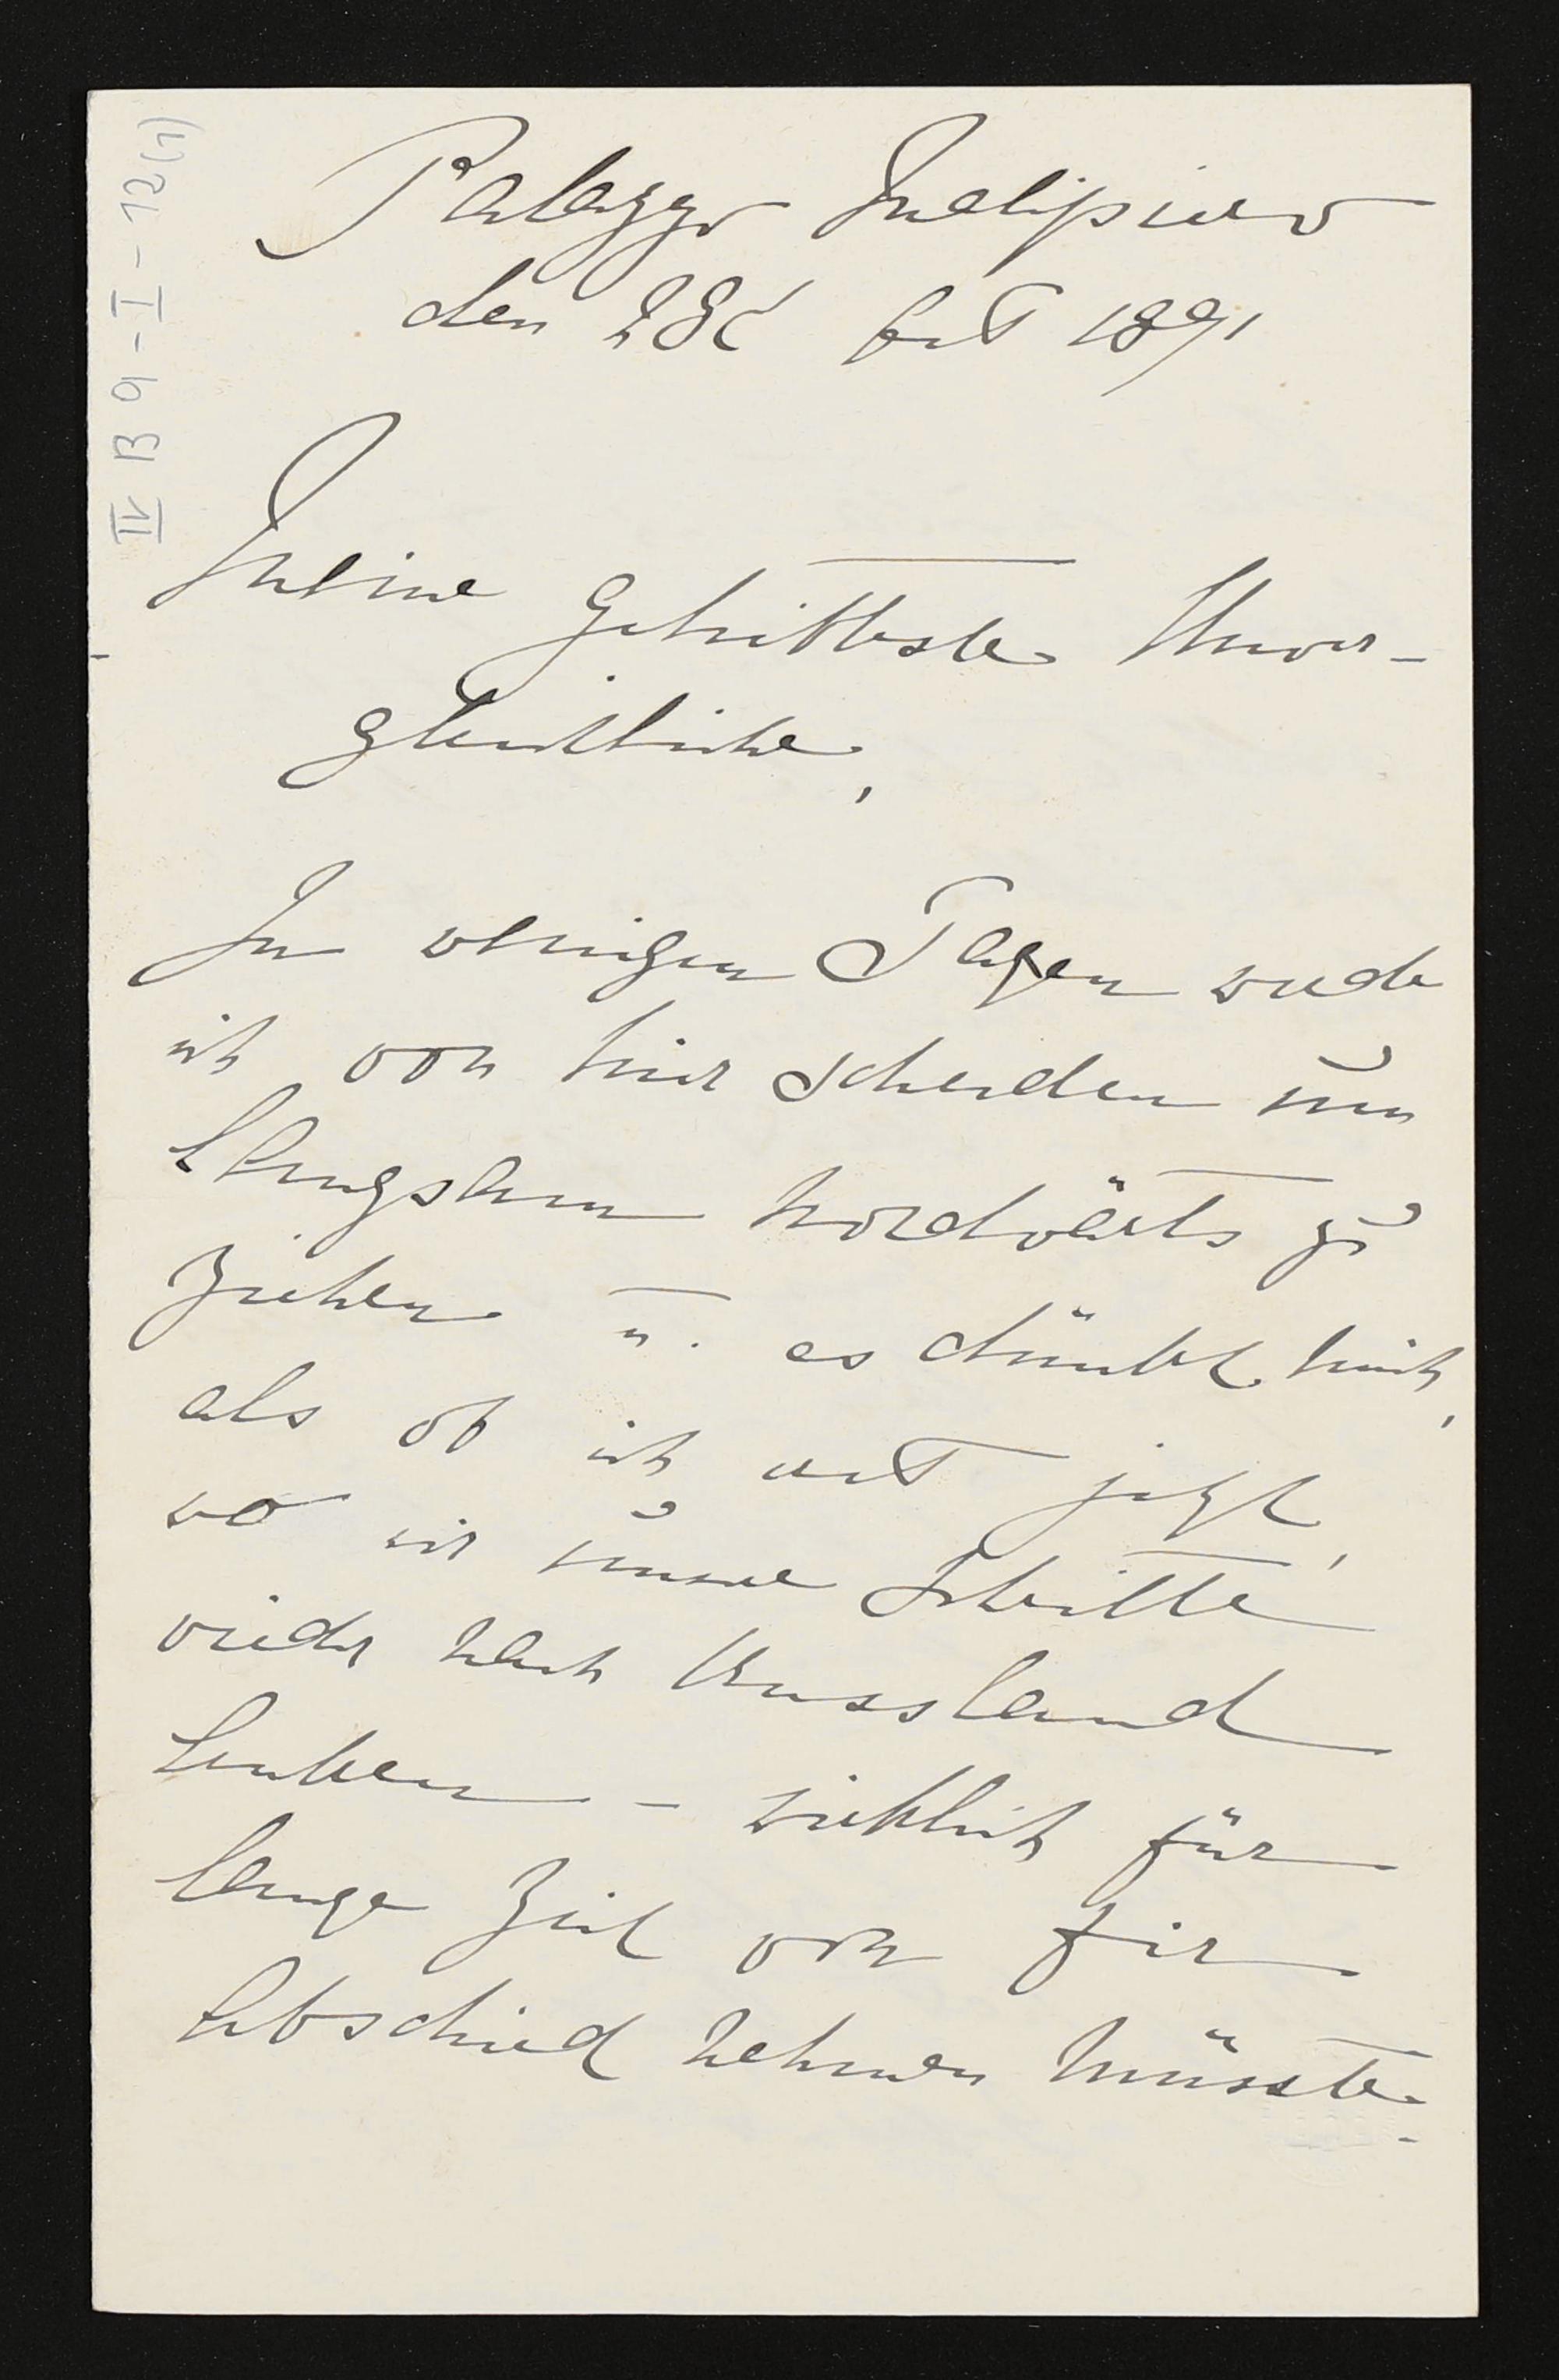 IV B 9 - I - 12 (1)
Palazzo Malipiero
den 28t Oct 1891
Meine Geliebteste Unver-
gleichliche,
In wenigen Tagen werde
ich von hier scheiden um
langsam nordwärts zu
ziehen u. es dünkt mich,
als ob ich erst jetzt,
wo wir unsere Schritte
wieder nach Russland
lenken - wirklich für
lange Zeit von Dir
Abschied nehmen müsste.